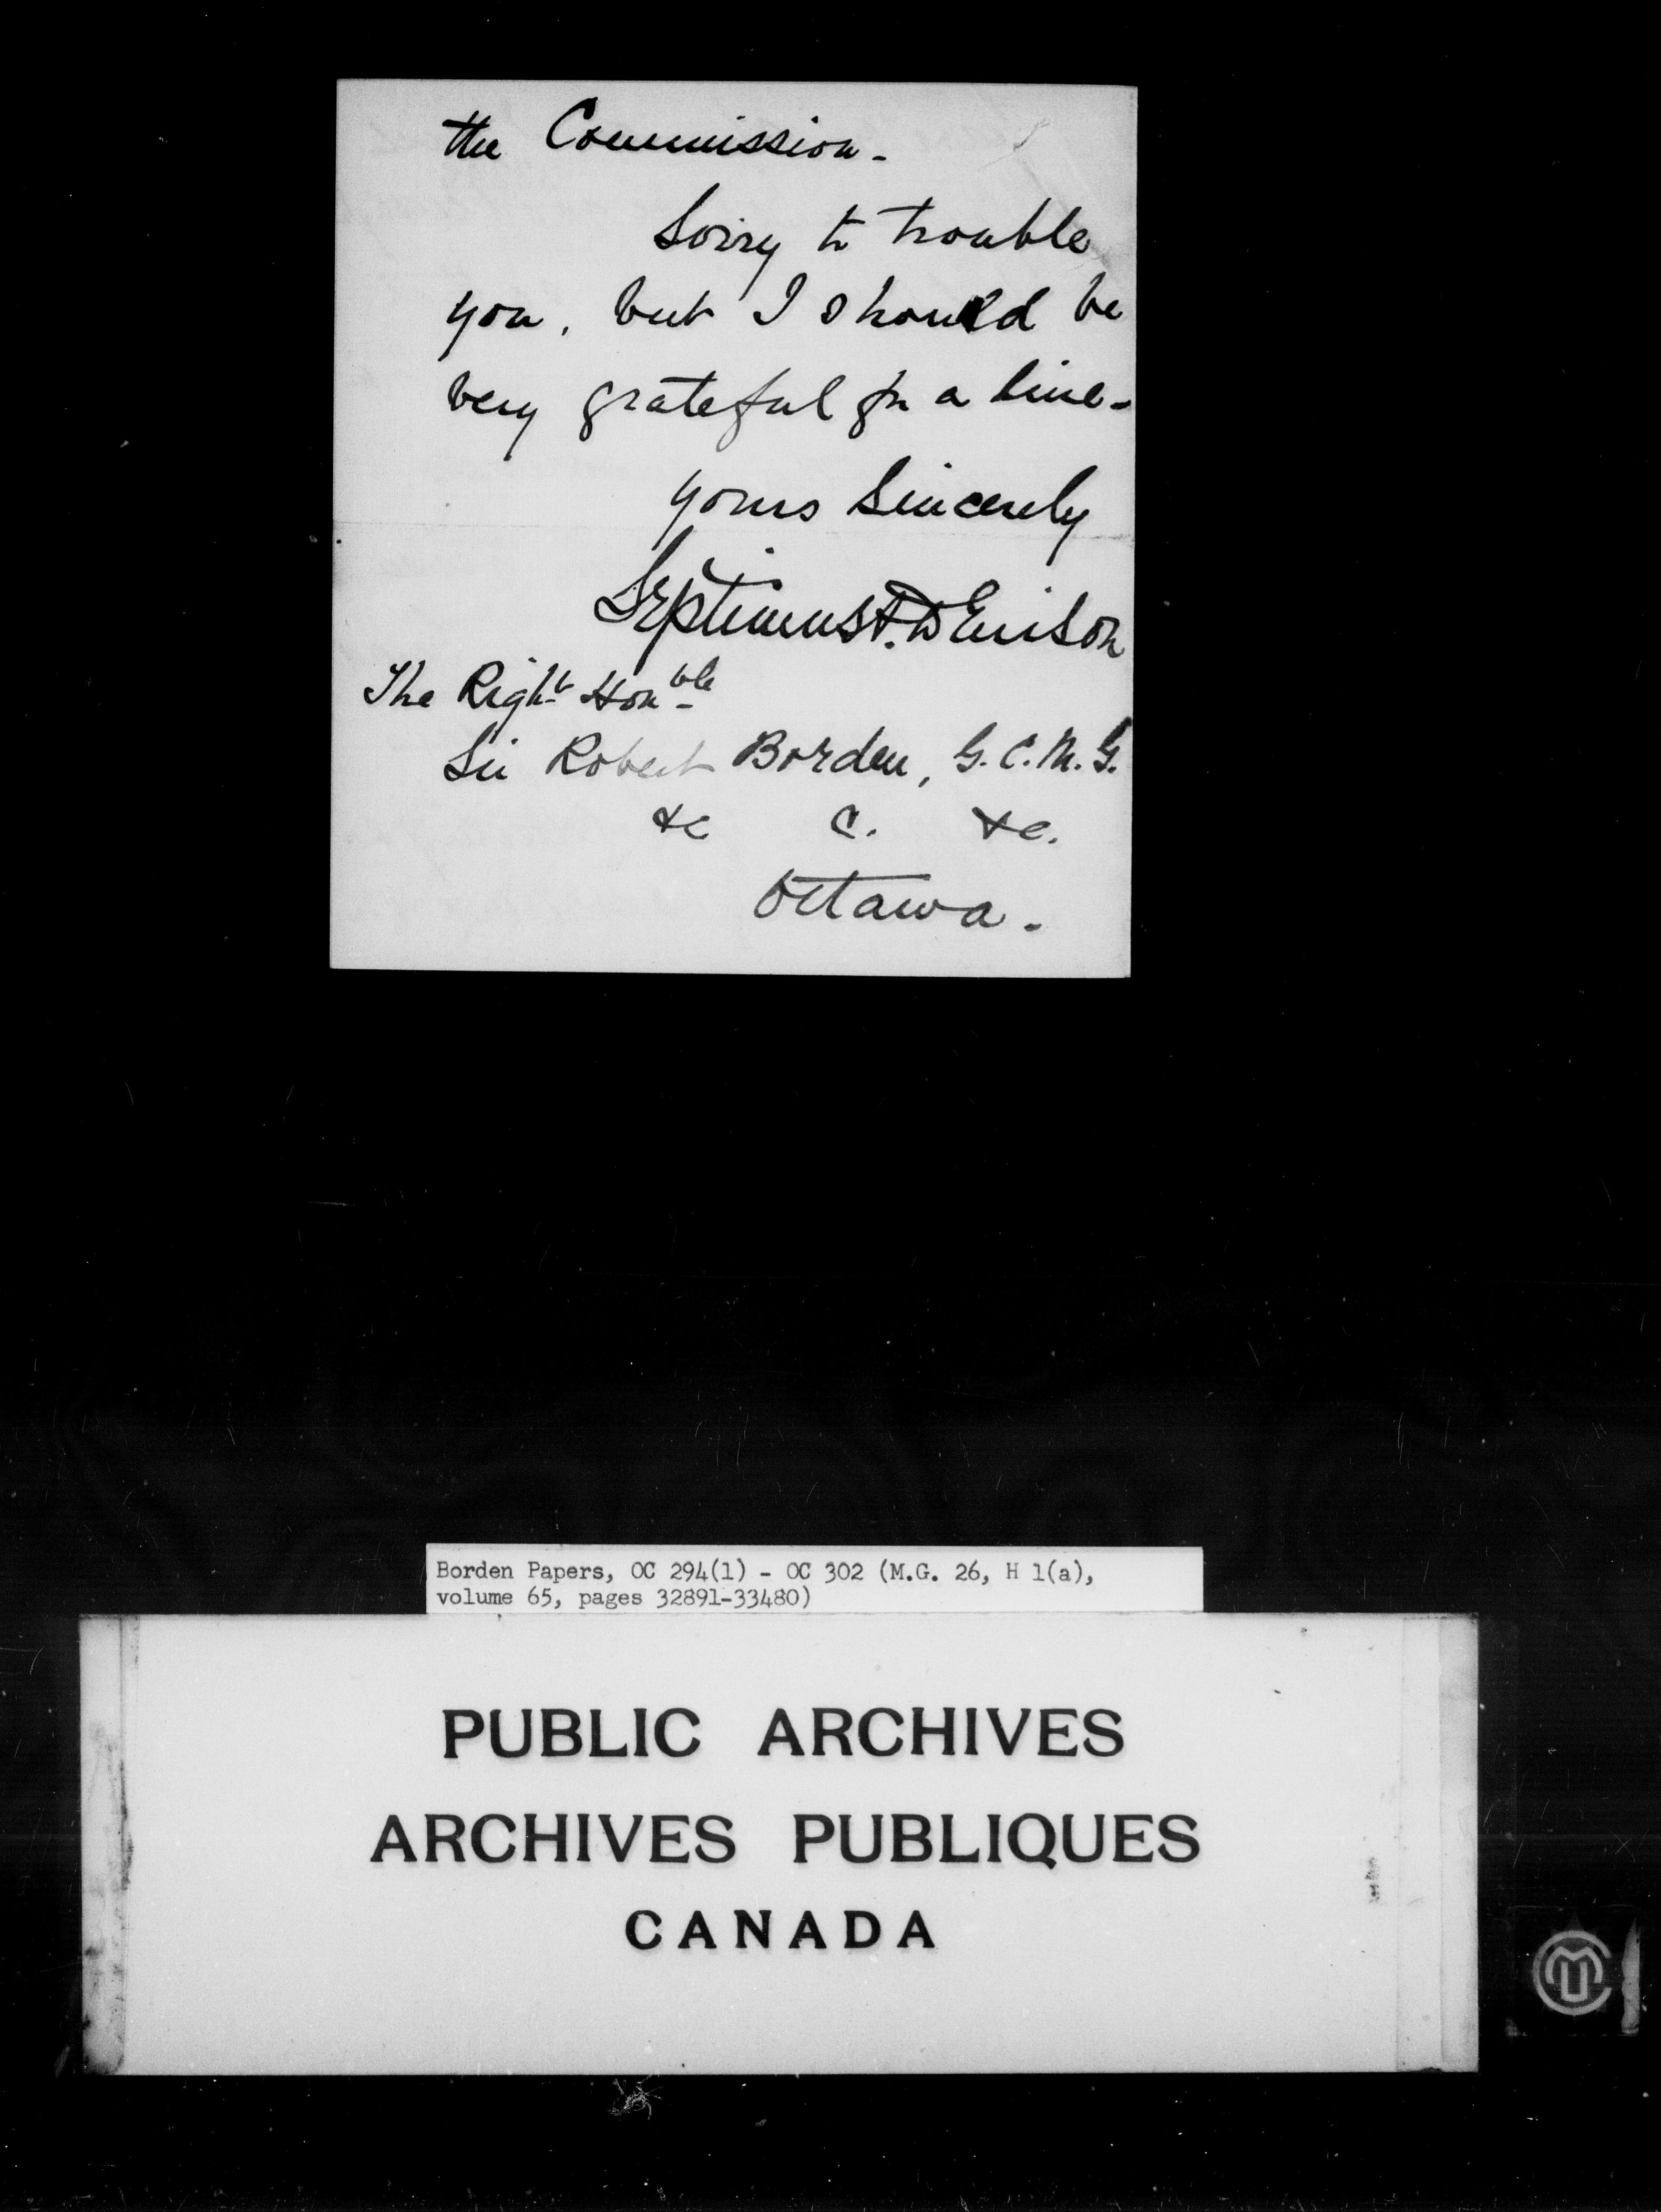 the Commission -
Sorry to trouble
you, but I should be
very grateful for a line -
Yours Sincerely
Septimus A. Denison
The Right Honble
Sir Robert Borden, G.C.M.G.
&c C. &c.
Ottawa.
Borden Papers, OC 294(1) - OC 302 (M.G. 26, H 1(a),
volume 65, pages 32891-33480)
PUBLIC ARCHIVES
ARCHIVES PUBLIQUES
CANADA